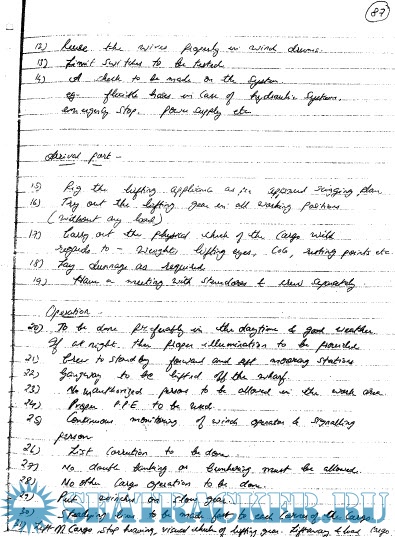 87
12) the wires properly in winch drums.
13) Limit switches to be tested
14) A check to be made on the system
eg. flexible hoses in case of hydraulic system,
emergency stop, power supply etc
Arrival port -
15) Rig the lifting appliance as per approved rigging plan
16) Try out the lifting gear in all working positions
(without any load)
17) Carry out the physical check of the Cargo with
regards to - Weight, lifting eyes, CoG, resting points etc.
18) Lay dunnage as required
19) Have a meeting with stevedores & crew separately.
Operation -
20) To be done preferably in the daytime & good weather.
If at night, then proper illumination to be provided
21) Crew to standby forward and aft mooring stations
22) Gangway to be lifted off the wharf.
23) No unauthorized persons to be allowed in the work area
24) Proper P.P.E to be used.
25) Continuous monitoring of winch operator & signalling
person
26) List correction to be done
27) No double banking or bunkering must be allowed.
28) No other Cargo operation to be done.
29) Put winches on slow gear.
30) Steadying lines to be made fast to each corner of the cargo.
31) Lift Cargo stop heaving, visual check of lifting gear.
SEATRACKER.RU